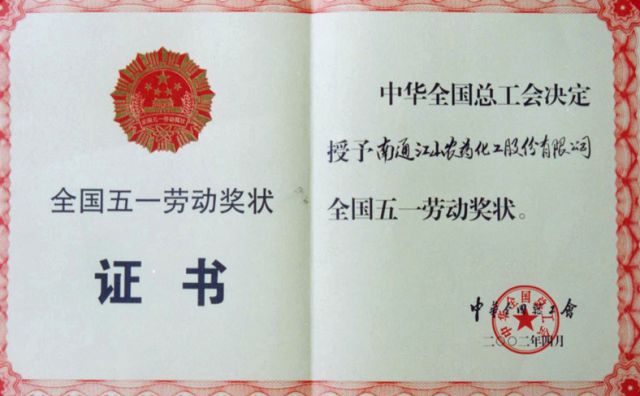 全国五一劳动奖状
全国五一劳动奖状
证书
中华全国总工会决定
授予南通江山农药化工股份有限公司
全国五一劳动奖状。
中华全国总工會
中华全国总工会
二〇〇二年四月